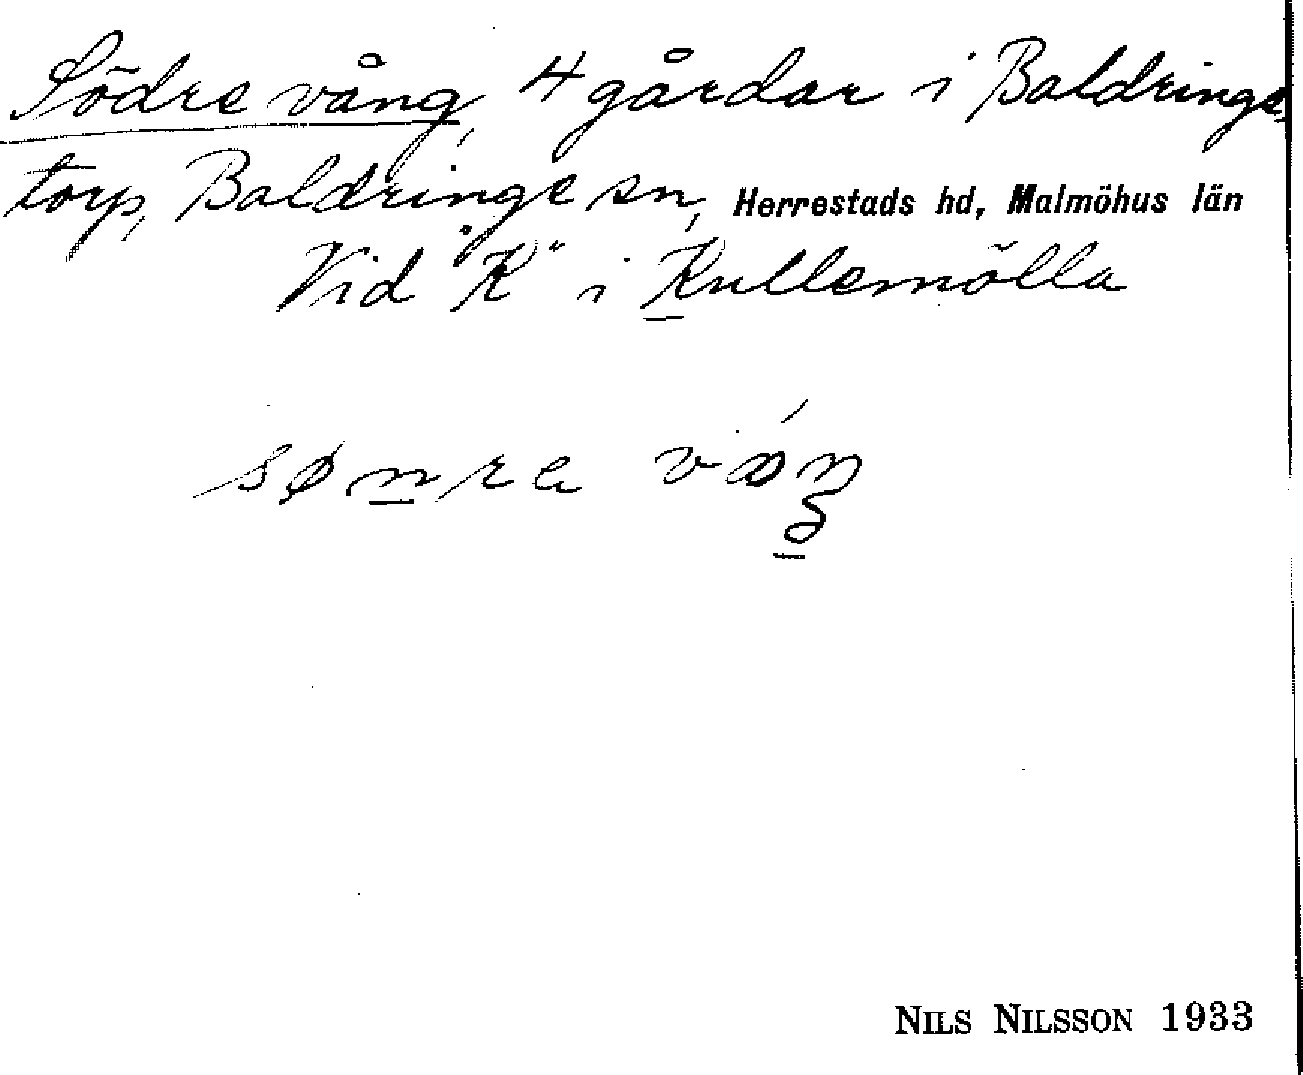 Södre vång, 4 gårdar i Baldringe-
torp, Baldringe sn, Herrestads hd, Malmöhus län
Vid "K" i Kullemölla
sønra váŋ
NILS NILSSON 1933